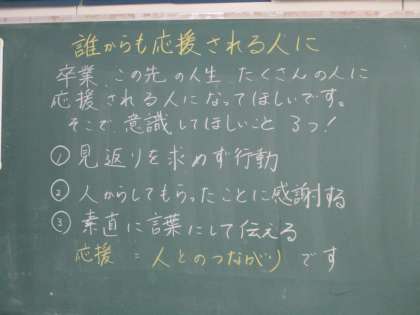 誰からも応援される人に
卒業、この先の人生、たくさんの人に
応援される人になってほしいです。
そこで、意識してほしいこと 3つ!
① 見返りを求めず行動
② 人からしてもらったことに感謝する
③ 素直に言葉にして伝える
応援 = 人とのつながり です